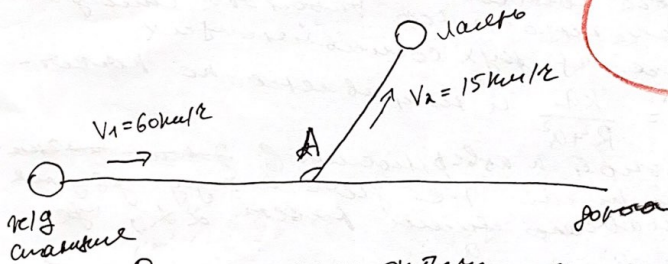 лагерь
V₂ = 15 км/ч
V₁ = 60 км/ч
A
ж/д
станция
дорога